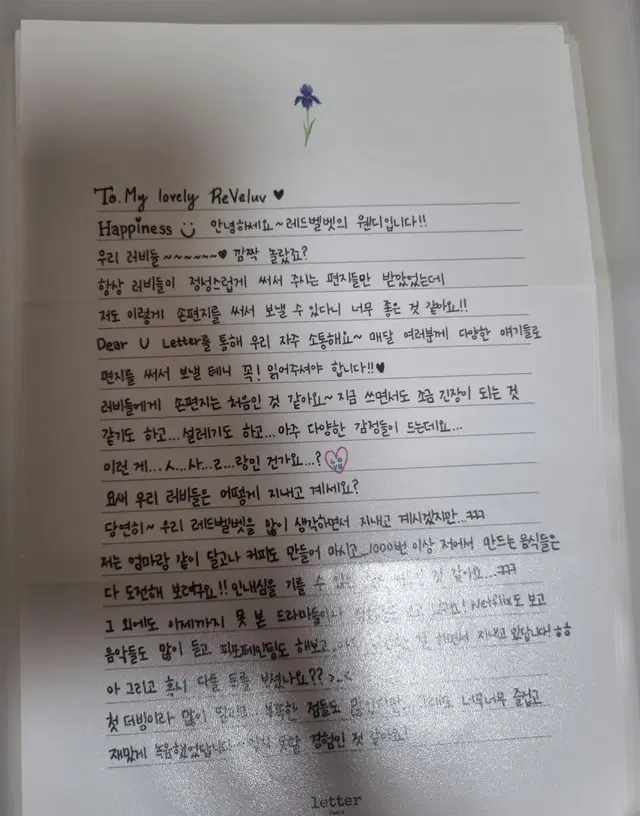 To. My lovely ReVeluv ♥
Happiness 안녕하세요~레드벨벳의 웬디입니다!!
우리 러비들~~~~~~♥ 깜짝 놀랐죠?
항상 러비들이 정성스럽게 써서 주시는 편지들만 받았었는데
저도 이렇게 손편지를 써서 보낼 수 있다니 너무 좋은 것 같아요!!
Dear U Letter를 통해 우리 자주 소통해요~ 매달 여러분께 다양한 얘기들로
편지를 써서 보낼 테니 꼭! 읽어주셔야 합니다!!♥
러비들에게 손편지는 처음인 것 같아요~ 지금 쓰면서도 조금 긴장이 되는 것
같기도 하고...설레기도 하고...아주 다양한 감정들이 드는데요...
이런 게...ㅅ...사...ㄹ...랑인 건가요...?
요새 우리 러비들은 어떻게 지내고 계세요?
당연히~ 우리 레드벨벳을 많이 생각하면서 지내고 계시겠지만...ㅋㅋㅋ
저는 엄마랑 같이 달고나 커피도 만들어 마시고...1000번 이상 저어서 만드는 음식들은
다 도전해 보려구요!! 인내심을 기를 수 있는 것 같아요...ㅋㅋㅋ
그 외에도 이제까지 못 본 드라마들이나 보고 Netflix도 보고
음악들도 많이 듣고 피포페인팅도 해보고 하면서 지내고 있답니다! ㅎㅎ
아 그리고 혹시 다들 트롤 보셨나요?? >_<
첫 더빙이라 많이 떨리고.. 부족한 점들도 많았지만 너무너무 즐겁고
재밌게 녹음했었답니다.. 경험인 것 같아요!
letter